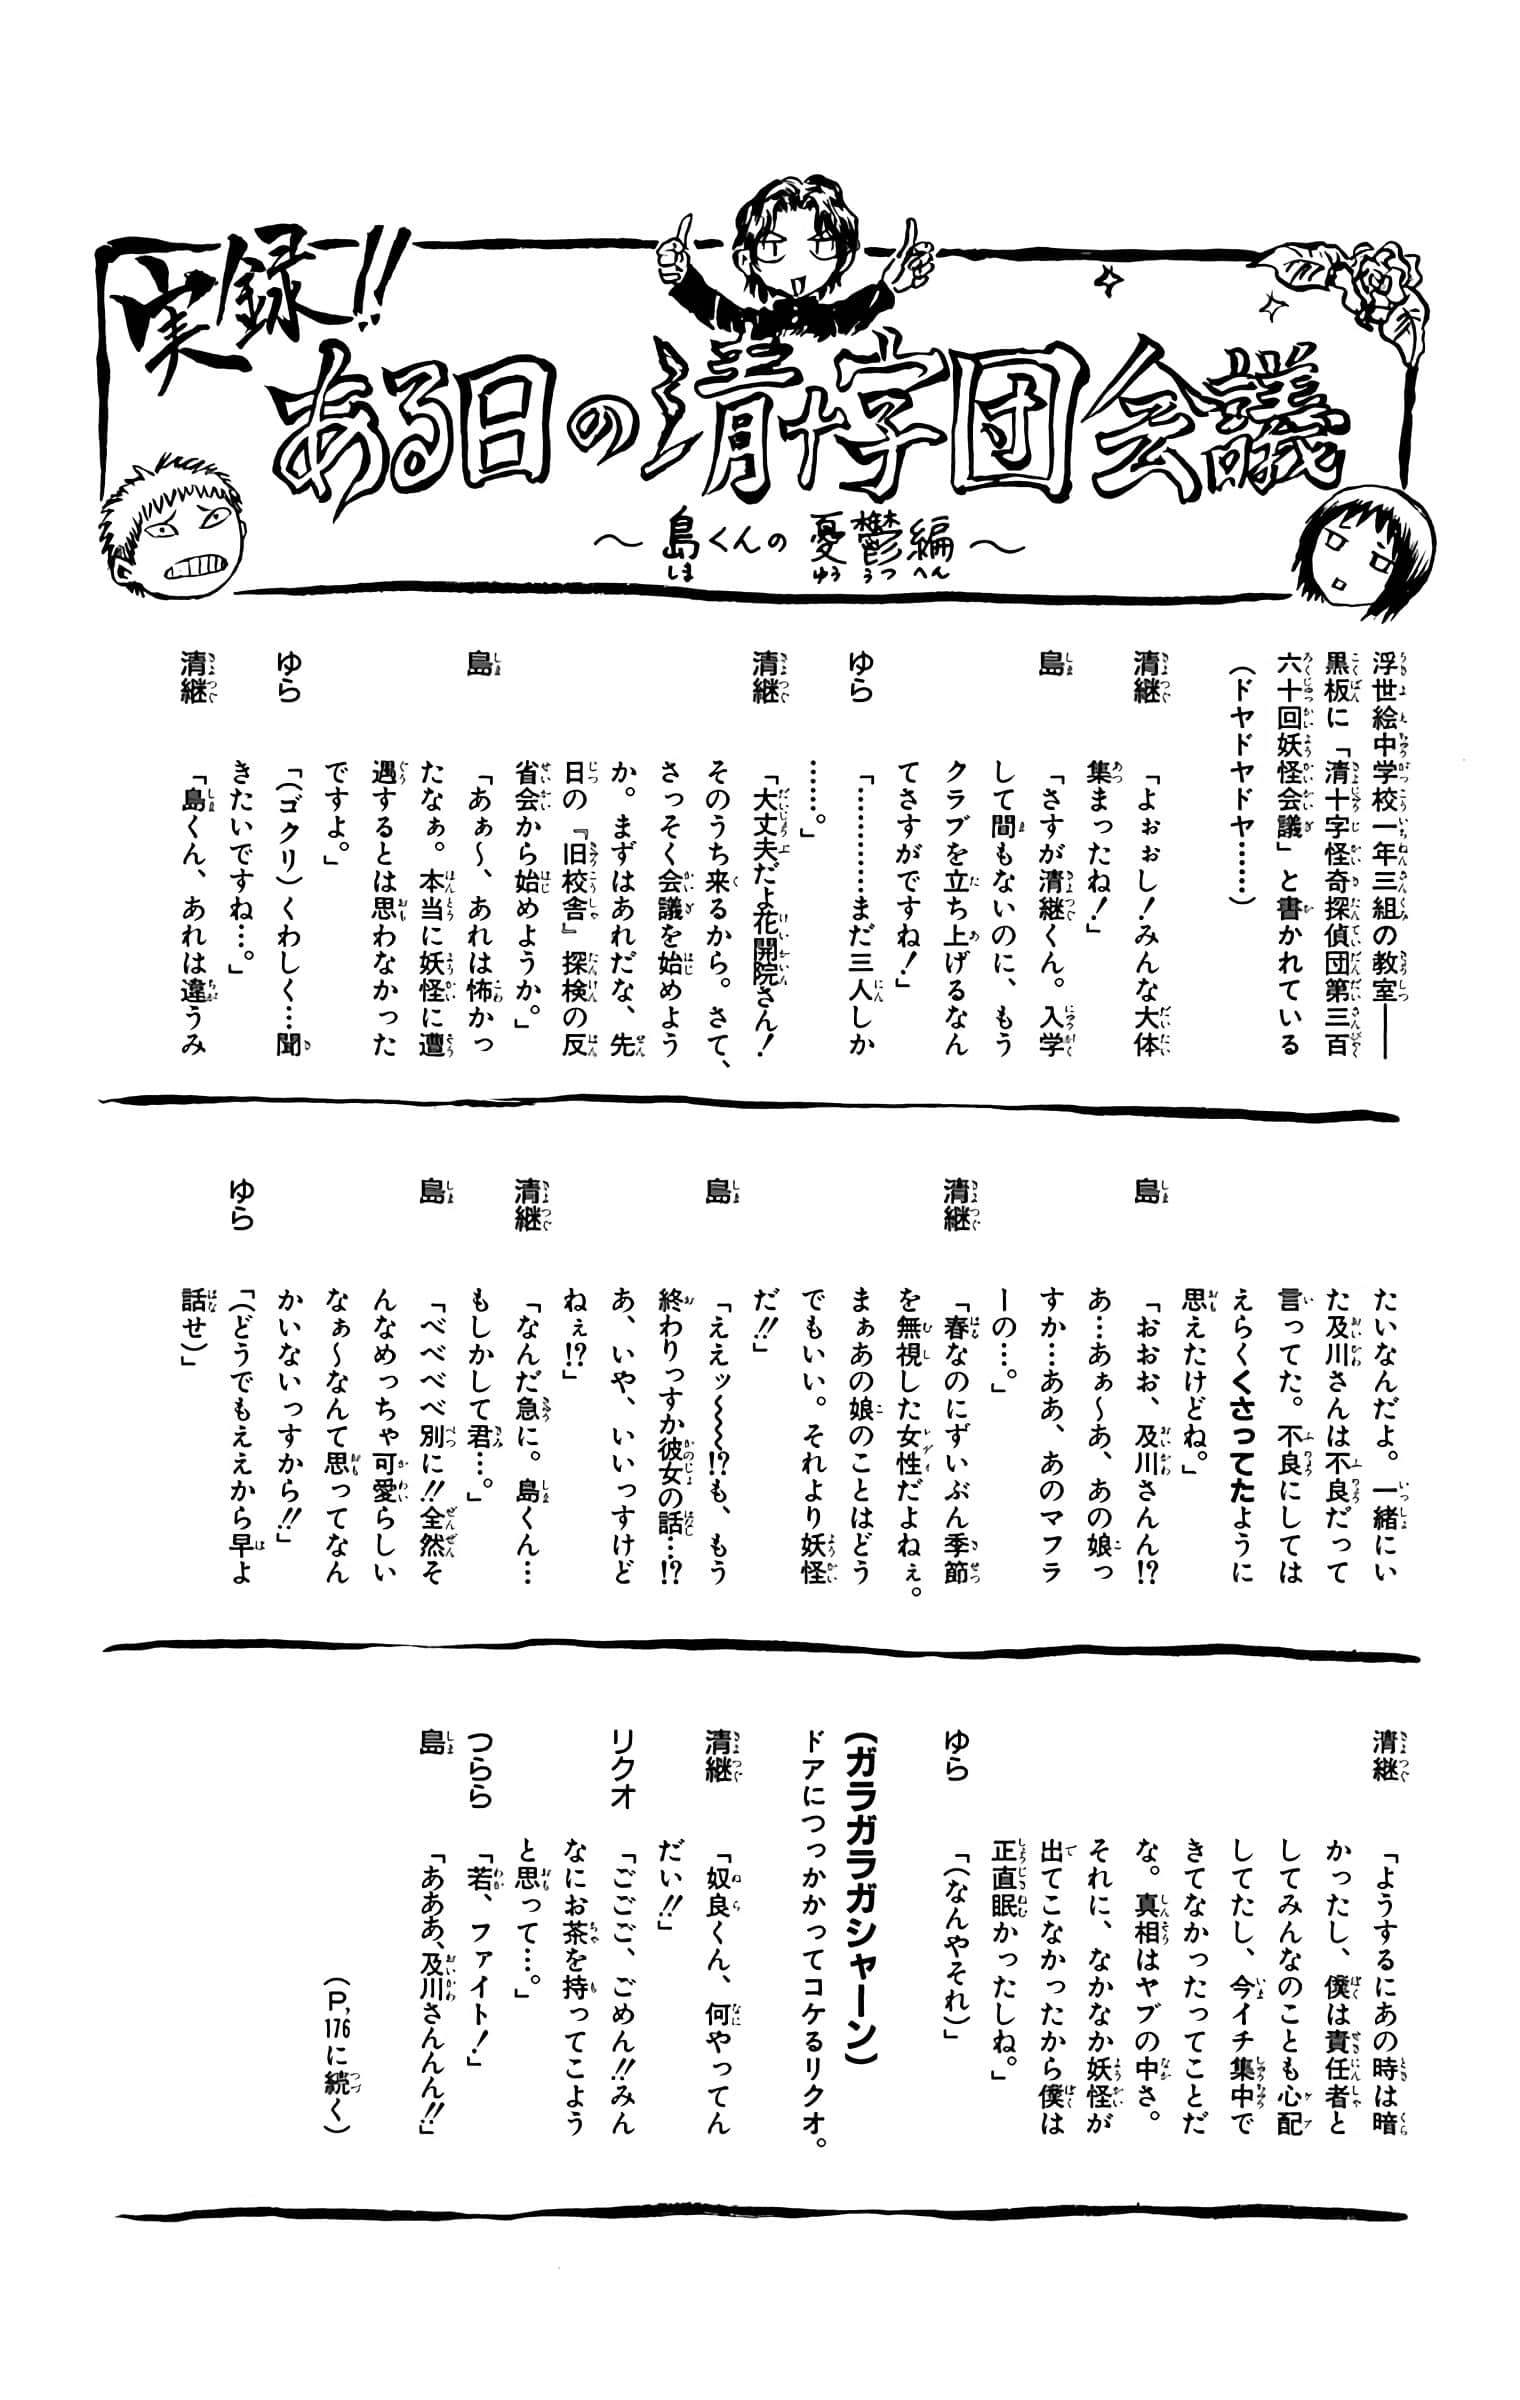 実録!!
ある日の清十字団会議
～島くんの憂鬱編～
浮世絵中学校一年三組の教室――
黒板に「清十字怪奇探偵団第三百
六十回妖怪会議」と書かれている
(ドヤドヤドヤ……)
清継「よぉぉし!みんな大体
集まったね!」
島「さすが清継くん。入学
して間もないのに、もう
クラブを立ち上げるなん
てさすがですね!」
ゆら「…………まだ三人しか
……。」
清継「大丈夫だよ花開院さん!
そのうち来るから。さて、
さっそく会議を始めよう
か。まずはあれだな、先
日の『旧校舎』探検の反
省会から始めようか。」
島「あぁ～、あれは怖かっ
たなぁ。本当に妖怪に遭
遇するとは思わなかった
ですよ。」
ゆら「(ゴクリ)くわしく…聞
きたいですね…。」
清継「島くん、あれは違うみ
たいなんだよ。一緒にい
た及川さんは不良だって
言ってた。不良にしては
えらくくさってたように
思えたけどね。」
島「おおお、及川さんん!?
あ…あぁ～あ、あの娘っ
すか…ああ、あのマフラ
ーの…。」
清継「春なのにずいぶん季節
を無視した女性だよねぇ。
まぁあの娘のことはどう
でもいい。それより妖怪
だ!!」
島「ええッ～～!?も、もう
終わりっすか彼女の話…!?
あ、いや、いいっすけど
ねぇ!?」
清継「なんだ急に。島くん…
もしかして君…。」
島「べべべべ別に!!全然そ
んなめっちゃ可愛らしい
なぁ～なんて思ってなん
かいないっすから!!」
ゆら「(どうでもええから早よ
話せ)」
清継「ようするにあの時は暗
かったし、僕は責任者と
してみんなのことも心配
してたし、今イチ集中で
きてなかったってことだ
な。真相はヤブの中さ。
それに、なかなか妖怪が
出てこなかったから僕は
正直眠かったしね。」
ゆら「(なんやそれ)」
(ガラガラガシャーン)
ドアにつっかかってコケるリクオ。
清継「奴良くん、何やってん
だい!!」
リクオ「ごごご、ごめん!!みん
なにお茶を持ってこよう
と思って…。」
つらら「若、ファイト!」
島「あああ、及川さんんん!!」
(P,176に続く)